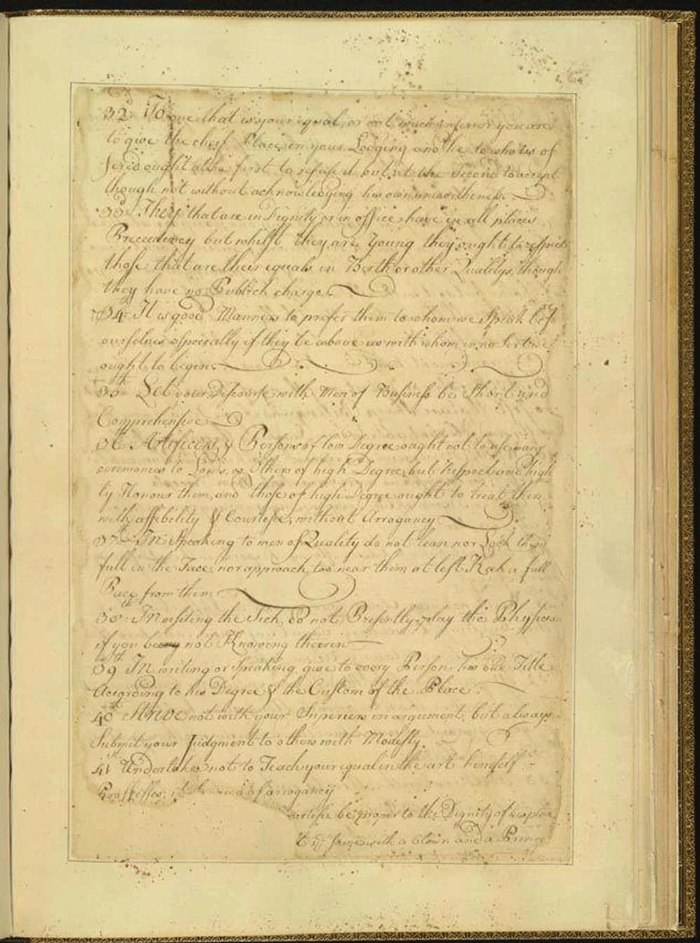 32d To one that is your equal, or not much inferior you are
to give the cheif Place in your Lodging and he to who 'tis of
fered ought at the first to refuse it but at the Second to accept
though not without acknowledging his own unworthiness.
33d They that are in Dignity or in office have in all places
Preceedency but whilst they are Young they ought to respect
those that are their equals in Birth or other Qualitys, though
they have no Publick charge.
34th It is good Manners to prefer them to whom we Speak befo
ourselves especially if they be above us with whom in no Sort we
ought to begin.
35th Let your Discourse with Men of Business be Short and
Comprehensive.
36th Artificers & Persons of low Degree ought not to use many
ceremonies to Lords, or Others of high Degree but Respect and high
ly Honour them, and those of high Degree ought to treat them
with affibility & Courtesie, without Arrogancy
37th In Speaking to men of Quality do not lean nor Look them
full in the Face, nor approach too near them at lest Keep a full
Pace from them
38th In visiting the Sick, do not Presently play the Physicion
if you be not Knowing therein
39th In writing or Speaking, give to every Person his due Title
According to his Degree & the Custom of the Place.
40th Strive not with your Superiers in argument, but always
Submit your Judgment to others with Modesty
41st Undertake not to Teach your equal in the art himself
Proffesses; it of arrogancy
be proper to the Dignity of
same with a Clown and a Prince